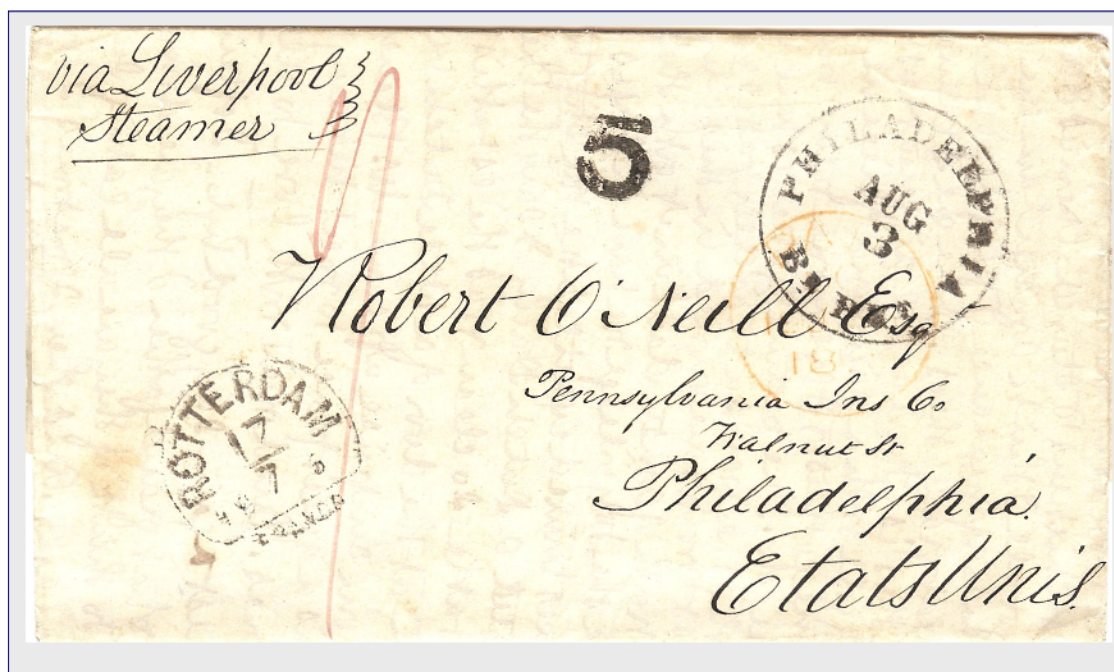 via Liverpool
Steamer
5
PHILADELPHIA
AUG
3
Robert O'Neill Esq
18
Pennsylvania Ins Co
Walnut St
Philadelphia.
Etats Unis.
ROTTERDAM
17
7
FRANCO